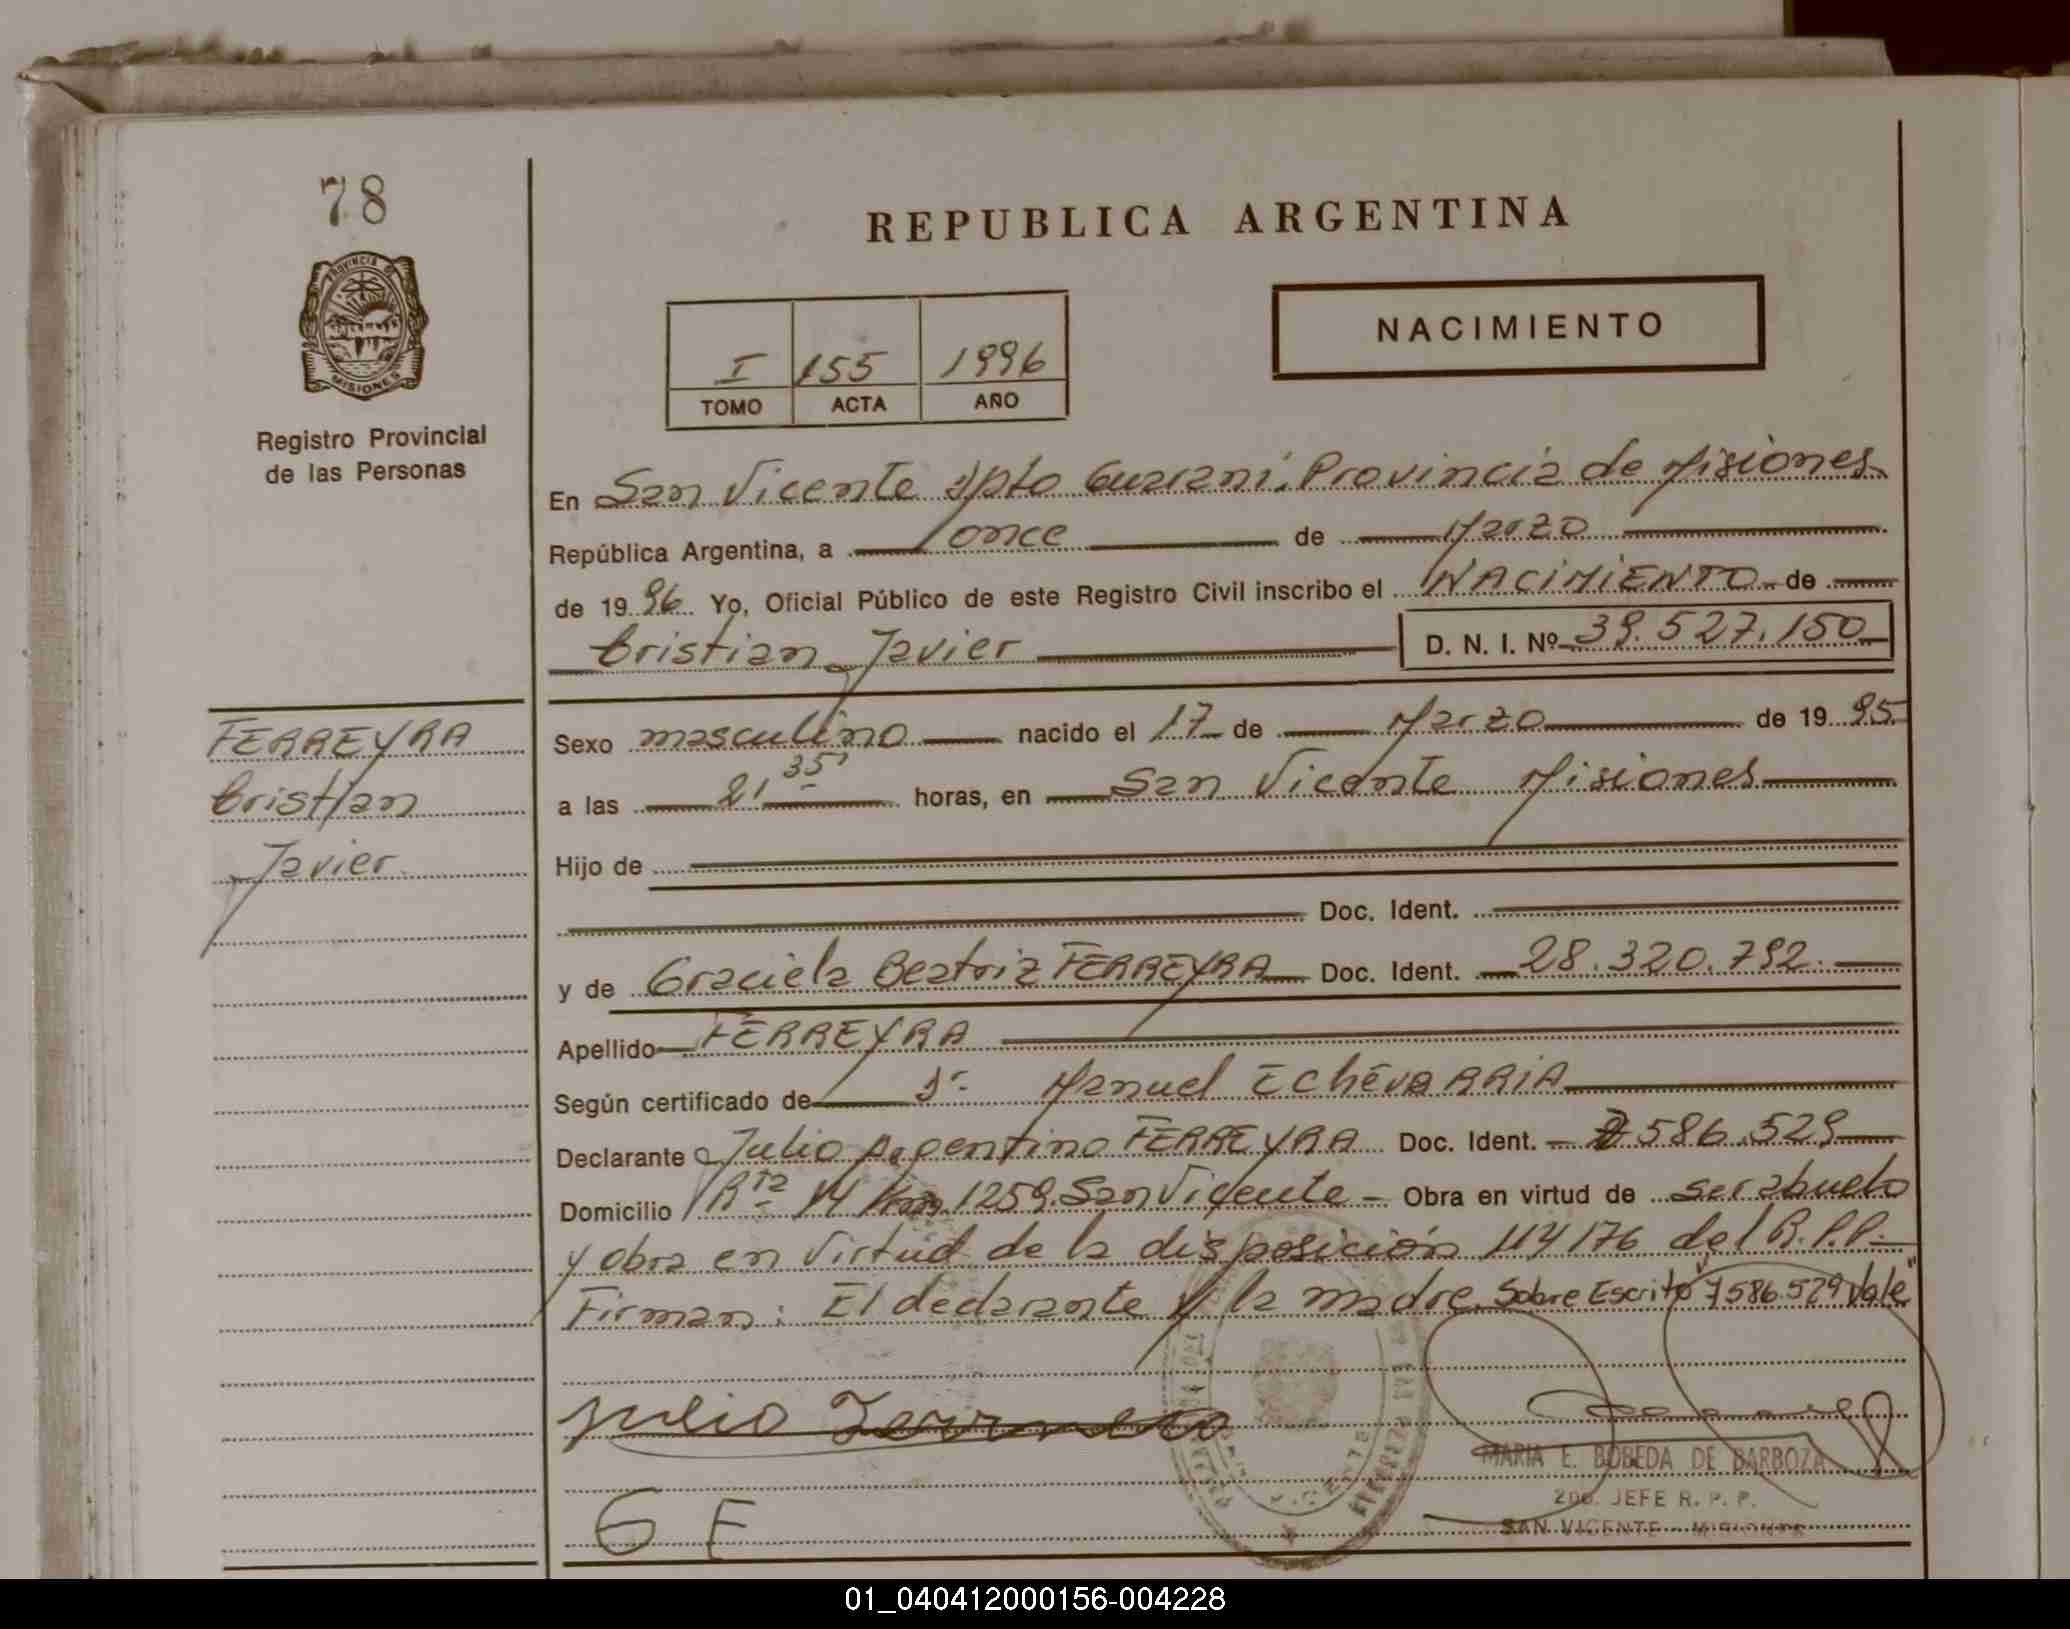 78
REPUBLICA ARGENTINA
PROVINCIA DE
MISIONES
Registro Provincial
de las Personas
I 155 1996
TOMO ACTA AÑO
NACIMIENTO
En San Vicente Dpto Guarani. Provincia de Misiones
República Argentina, a once de Marzo
de 19 96 Yo, Oficial Público de este Registro Civil inscribo el NACIMIENTO de
Cristian Javier D. N. I. Nº 39.527.150
FERREYRA
Cristian
Javier
Sexo masculino nacido el 17 de Marzo de 19 95
a las 21 35' horas, en San Vicente Misiones
Hijo de
Doc. Ident.
y de Graciela Beatriz FERREYRA Doc. Ident. 28.320.792.
Apellido FERREYRA
Según certificado de Dr. Manuel EchevARRIA
Declarante Julio Argentino FERREYRA Doc. Ident. 7586.529
Domicilio Rta 14 Km 1259. San Vicente - Obra en virtud de ser abuelo
y obra en virtud de la disposición 114176 del R.P.P.
Firman: El declarante y la madre. Sobre Escrito "7586.529 Vale"
Julio
G F
MARIA E. BOBEDA DE BARBOZA
2do. JEFE R. P. P.
SAN VICENTE - MISIONES
01_040412000156-004228